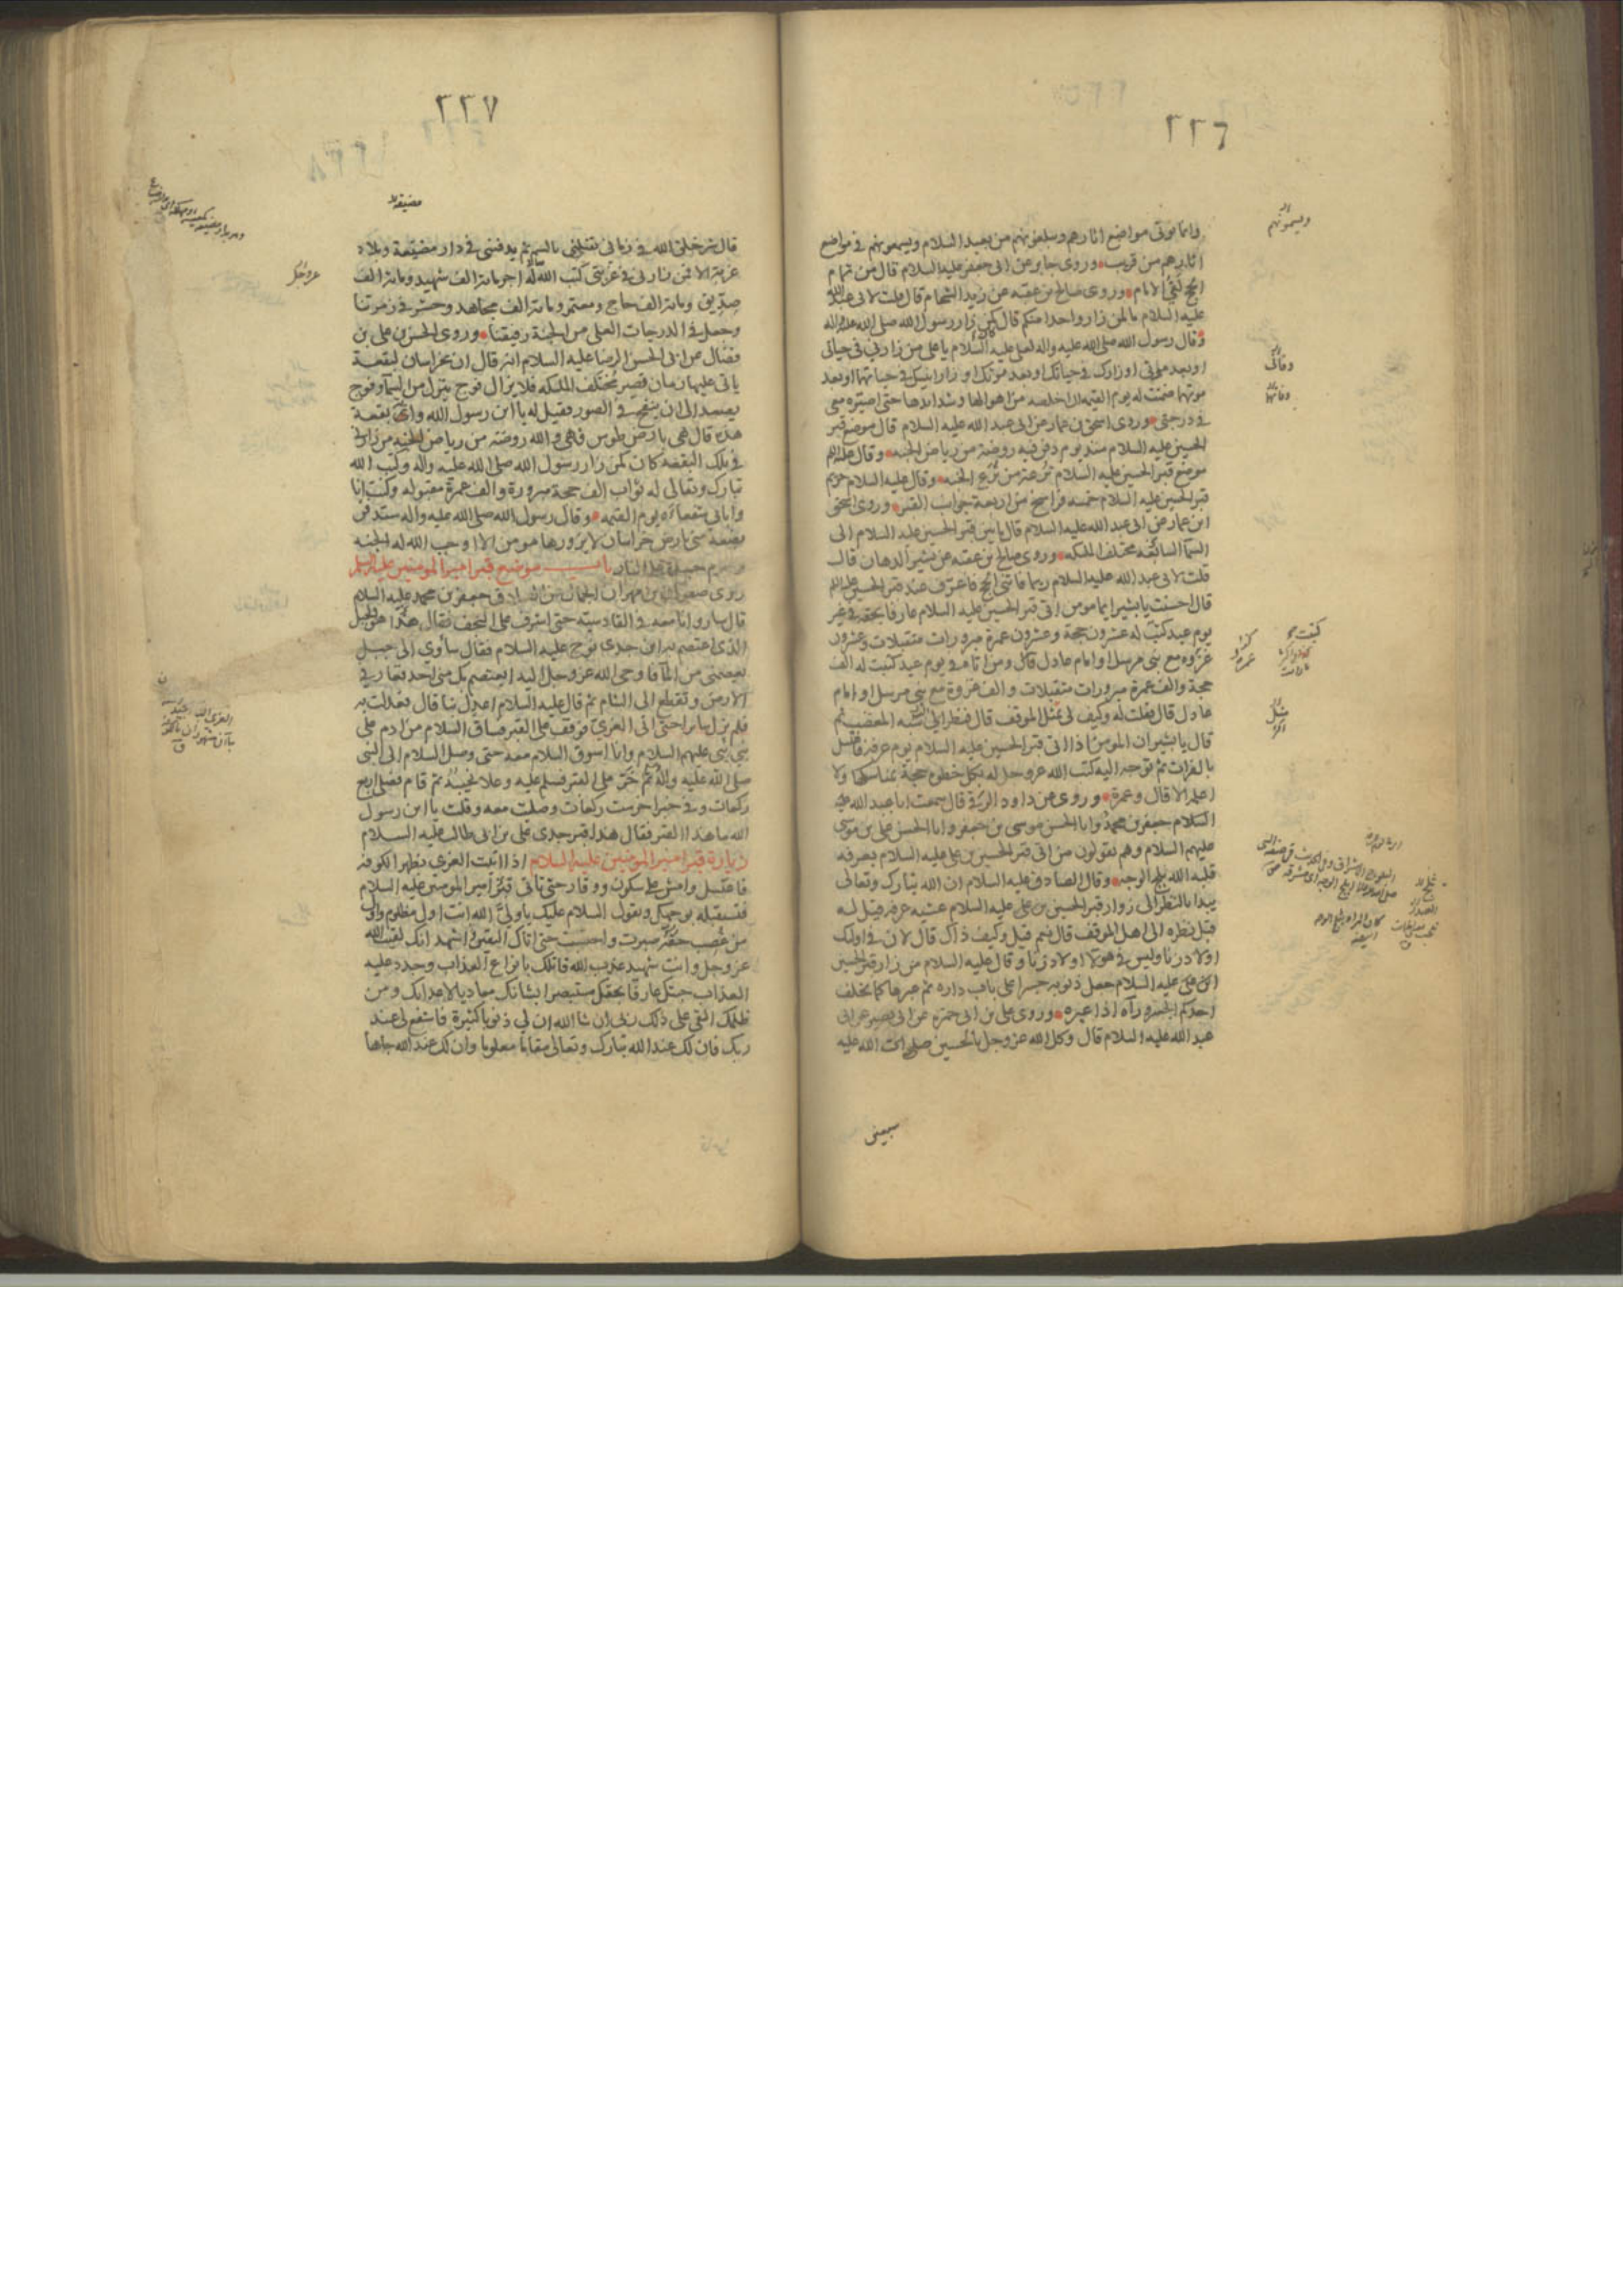 ٢٢٦
وانما يوتى مواضع اثارهم ويبلغونهم من بعيد السلام ويسمعونهم في مواضع
اثارهم من قريب وروى جابر عن ابي جعفر عليه السلام قال من تمام
الحج لقي الامام وروى صالح بن عقبه عن زيد الشحام قال قلت لابي عبد الله
عليه السلام ما لمن زار واحدا منكم قال كمن زار رسول الله صلى الله عليه واله
وقال رسول الله صلى الله عليه واله لعلي عليه السلام يا علي من زارني في حياتي
او بعد موتي او زارك في حياتك او بعد موتك او زار ابنيك في حياتهما او بعد
موتهما ضمنت له يوم القيمه ان اخلصه من اهوالها وشدايدها حتى اصيره معي
في درجتي وروى اسحق بن عمار عن ابي عبد الله عليه السلام قال موضع قبر
الحسين عليه السلام منذ يوم دفن فيه روضة من رياض الجنه وقال عليه السلم
موضع قبر الحسين عليه السلام ترعة من ترع الجنه وقال عليه السلام حريم
قبر الحسين عليه السلام خمسه فراسخ من اربعة جوانب القبر وروى اسحق
ابن عمار عن ابي عبد الله عليه السلام قال ما بين قبر الحسين عليه السلام الى
السمآ السابعه مختلف الملئكه وروى صالح بن عقبه عن بشير الدهان قال
قلت لابي عبد الله عليه السلام ربما فاتني الحج فاعرف عند قبر الحسين عليه السلم
قال احسنت يا بشير ايما مومن اتى قبر الحسين عليه السلام عارفا بحقه في غير
يوم عيد كتب له عشرون حجة وعشرون عمرة مبرورات متقبلات وعشرون
غزوه مع نبي مرسل او امام عادل قال ومن اتاه في يوم عيد كتبت له الف
حجة والف عمرة مبرورات متقبلات والف غزوة مع نبي مرسل او امام
عادل قال فقلت له وكيف لي بمثل الموقف قال فنظر الي شبه المغضب ثم
قال يا بشير ان المومن اذا اتى قبر الحسين عليه السلام يوم عرفة فاغتسل
بالفرات ثم توجه اليه كتب الله عز وجل له بكل خطوه حجة بمناسكها ولا
اعلم الا قال وعمرة وروى عن داود الرقي قال سمعت ابا عبد الله عليه
السلام جعفر بن محمد وابا الحسن موسى بن جعفر وابا الحسن علي بن موسى
عليهم السلام وهم يقولون من اتى قبر الحسين بن علي عليه السلام بعرفه
قلبه الله ثلج الوجه وقال الصادق عليه السلام ان الله تبارك وتعالى
يبدا بالنظر الى زوار قبر الحسين بن علي عليه السلام عشيه عرفه قيل له
قبل نظره الى اهل الموقف قال نعم قيل وكيف ذاك قال لان في اولئك
اولاد زنا وليس في هولآ اولاد زنا وقال عليه السلام من زار قبر الحسين
ابن علي عليه السلام جعل ذنوبه جسرا على باب داره ثم عبرها كما يخلف
احدكم الجسر ورآه اذا عبره وروى علي بن ابي حمزه عن ابي بصير عن ابي
عبد الله عليه السلام قال وكل الله عز وجل بالحسين صلوات الله عليه
سبعين
ويسمونهم
وفاتك
وفاتهما
٢٢٧
مضيقه
قال شر خلق الله في زماني يقتلني بالسم ثم يدفنني في دار مضيقة وبلاد
غربة الا فمن زارني في غربتي كتب الله له اجر ماىة الف شهيد وماىة الف
صديق وماىة الف حاج ومعتمر وماىة الف مجاهد وحشر في زمرتنا
وجعل في الدرجات العلى من الجنة رفيقنا وروى الحسن بن علي بن
فضال عن ابي الحسن الرضا عليه السلام انه قال ان بخراسان لبقعة
ياتي عليها زمان تصير مختلف الملئكه فلا يزال فوج ينزل من السمآ وفوج
يصعد الى ان ينفخ في الصور فقيل له يا ابن رسول الله واي بقعة
هذه قال هي بارض طوس فهي والله روضة من رياض الجنه من زارني
في تلك البقعه كان كمن زار رسول الله صلى الله عليه واله وكتب الله
تبارك وتعالى له ثواب الف حجة مبرورة والف عمرة مقبوله وكنت انا
وابائي شفعاءه يوم القيمه وقال رسول الله صلى الله عليه واله ستدفن
بضعة مني بارض خراسان لا يزورها مومن الا اوجب الله له الجنه
وحرم جسده على النار باب موضع قبر امير المومنين عليه السلم
روى صفوان بن مهران الجمال عن الصادق جعفر بن محمد عليه السلام
قال سار وانا معه في القادسية حتى اشرف على النجف فقال هذا هو الجبل
الذي اعتصم به ابن جدي نوح عليه السلام فقال سآوي الى جبل
يعصمني من المآ فاوحى الله عز وجل اليه ايعتصم بك مني احد فغار في
الارض وتقطع الى الشام ثم قال عليه السلام اعدل بنا قال فعدلت به
فلم يزل سايرا حتى اتى الغري فوقف على القبر فساق السلام من ادم على
نبي نبي عليهم السلام وانا اسوق السلام معه حتى وصل السلام الى النبي
صلى الله عليه واله ثم خر على القبر فسلم عليه وعلا نحيبه ثم قام فصلى اربع
ركعات وفي خبر اخر ست ركعات وصليت معه وقلت يا ابن رسول
الله ما هذا القبر فقال هذا قبر جدي علي بن ابي طالب عليه السلام
زيارة قبر امير المومنين عليه السلام اذا اتيت الغري بظهر الكوفه
فاغتسل وامش على سكون ووقار حتى تاتي قبر امير المومنين عليه السلام
فتستقبله بوجهك وتقول السلام عليك يا ولي الله انت اول مظلوم واول
من غصب حقه صبرت واحتسبت حتى اتاك اليقين واشهد انك لقيت الله
عز وجل وانت شهيد عذب الله قاتلك بانواع العذاب وجدد عليه
العذاب جئتك عارفا بحقك مستبصرا بشانك معاديا لاعدائك ومن
ظلمك القى على ذلك ربي ان شا الله ان لي ذنوبا كثيرة فاشفع لي عند
ربك فان لك عند الله تبارك وتعالى مقاما معلوما وان لك عند الله جاها
عز وجل